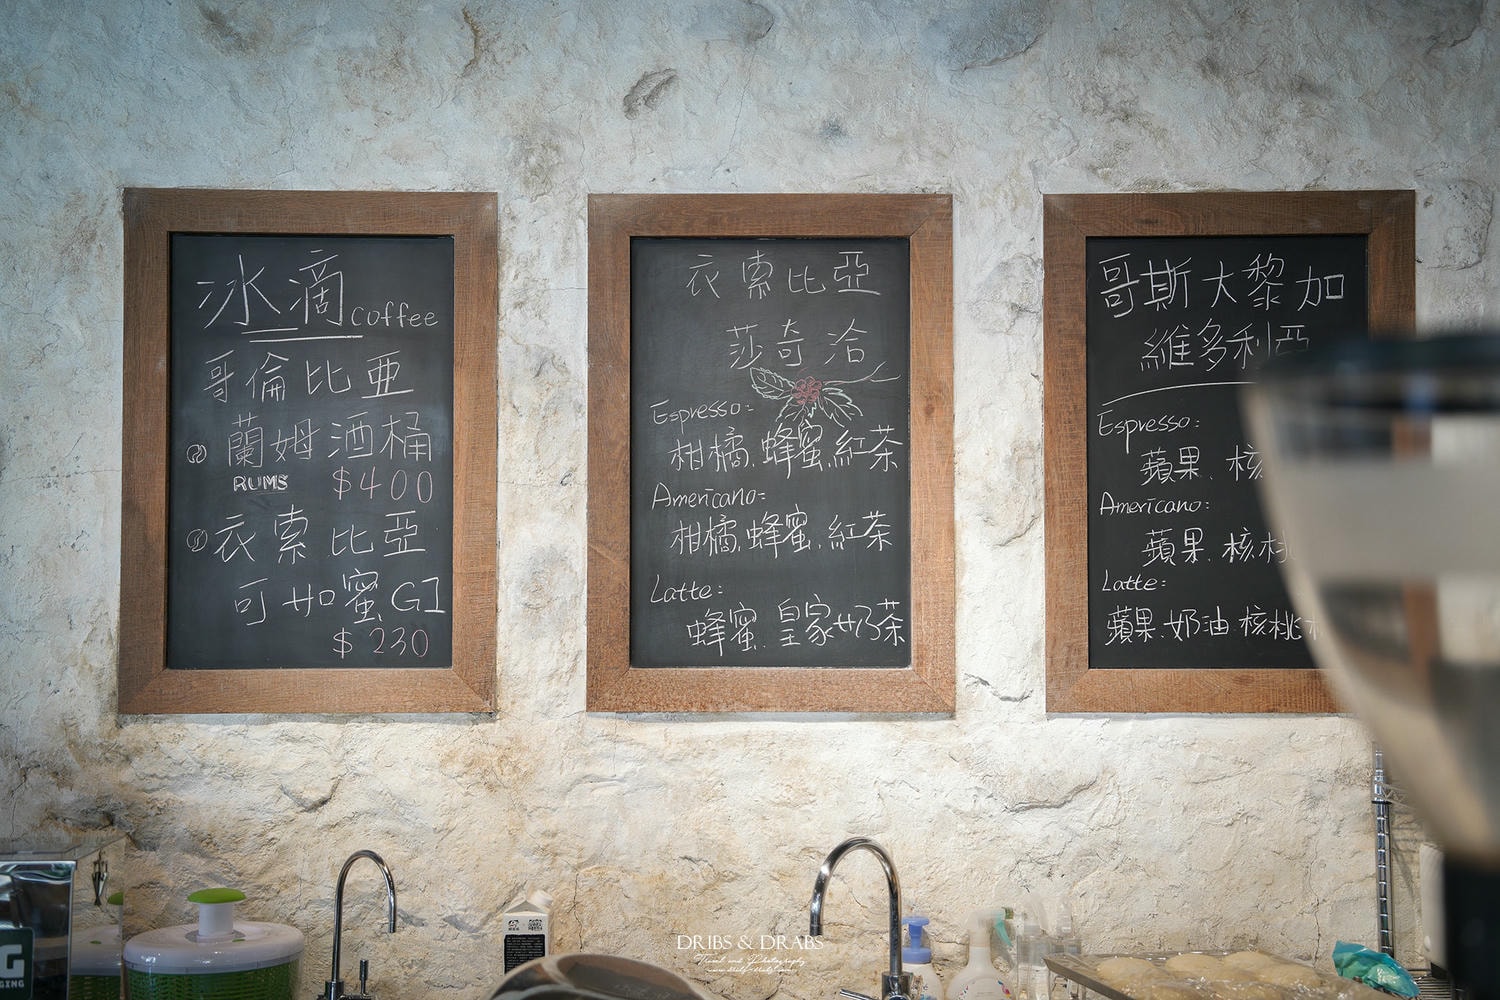 冰滴coffee
哥倫比亞
蘭姆酒桶
RUMS $400
衣索比亞
可加蜜G1
$230
衣索比亞
莎奇洽
Espresso:
柑橘.蜂蜜.紅茶
Americano:
柑橘.蜂蜜.紅茶
Latte:
蜂蜜.皇家奶茶
哥斯大黎加
維多利亞
Espresso:
蘋果.核
Americano:
蘋果.核桃
Latte:
蘋果.奶油.核桃
G
GING
DRIBS & DRABS
Travel and Photography